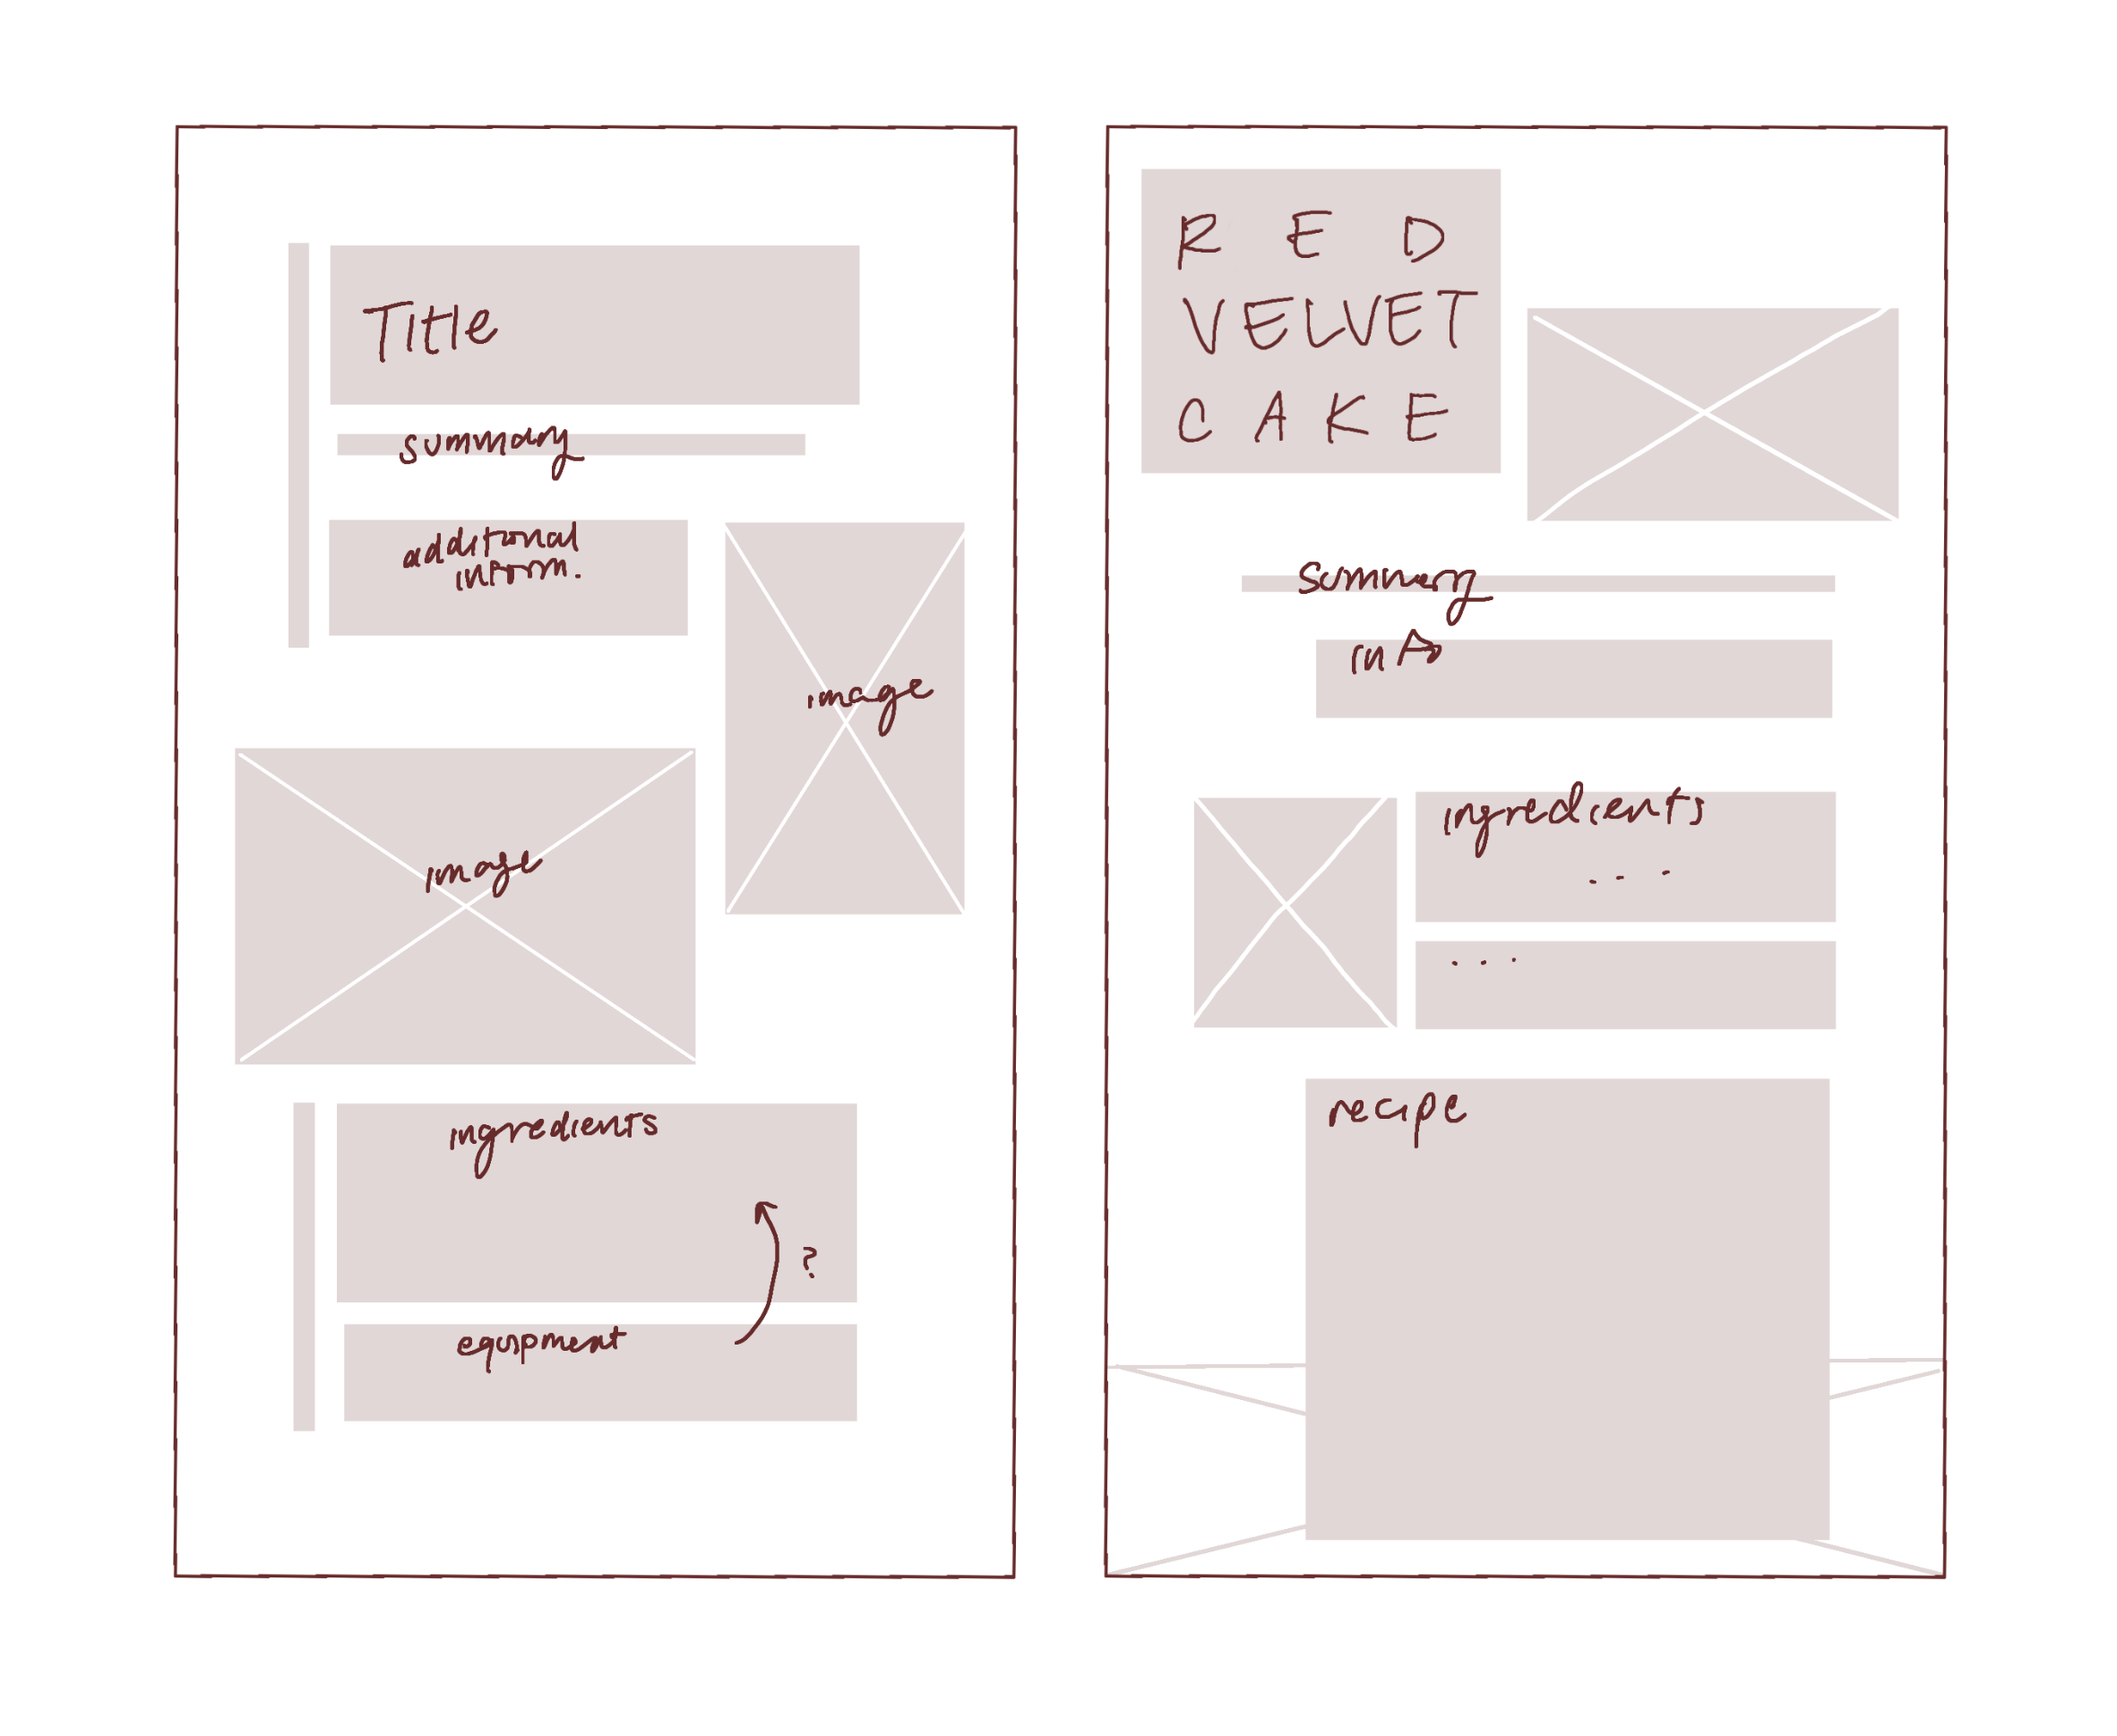 Title
summary
additional
inform.
image
image
ingredients
?
equipment
R E D
VELVET
CAKE
summary
info
ingredients
...
...
recipe